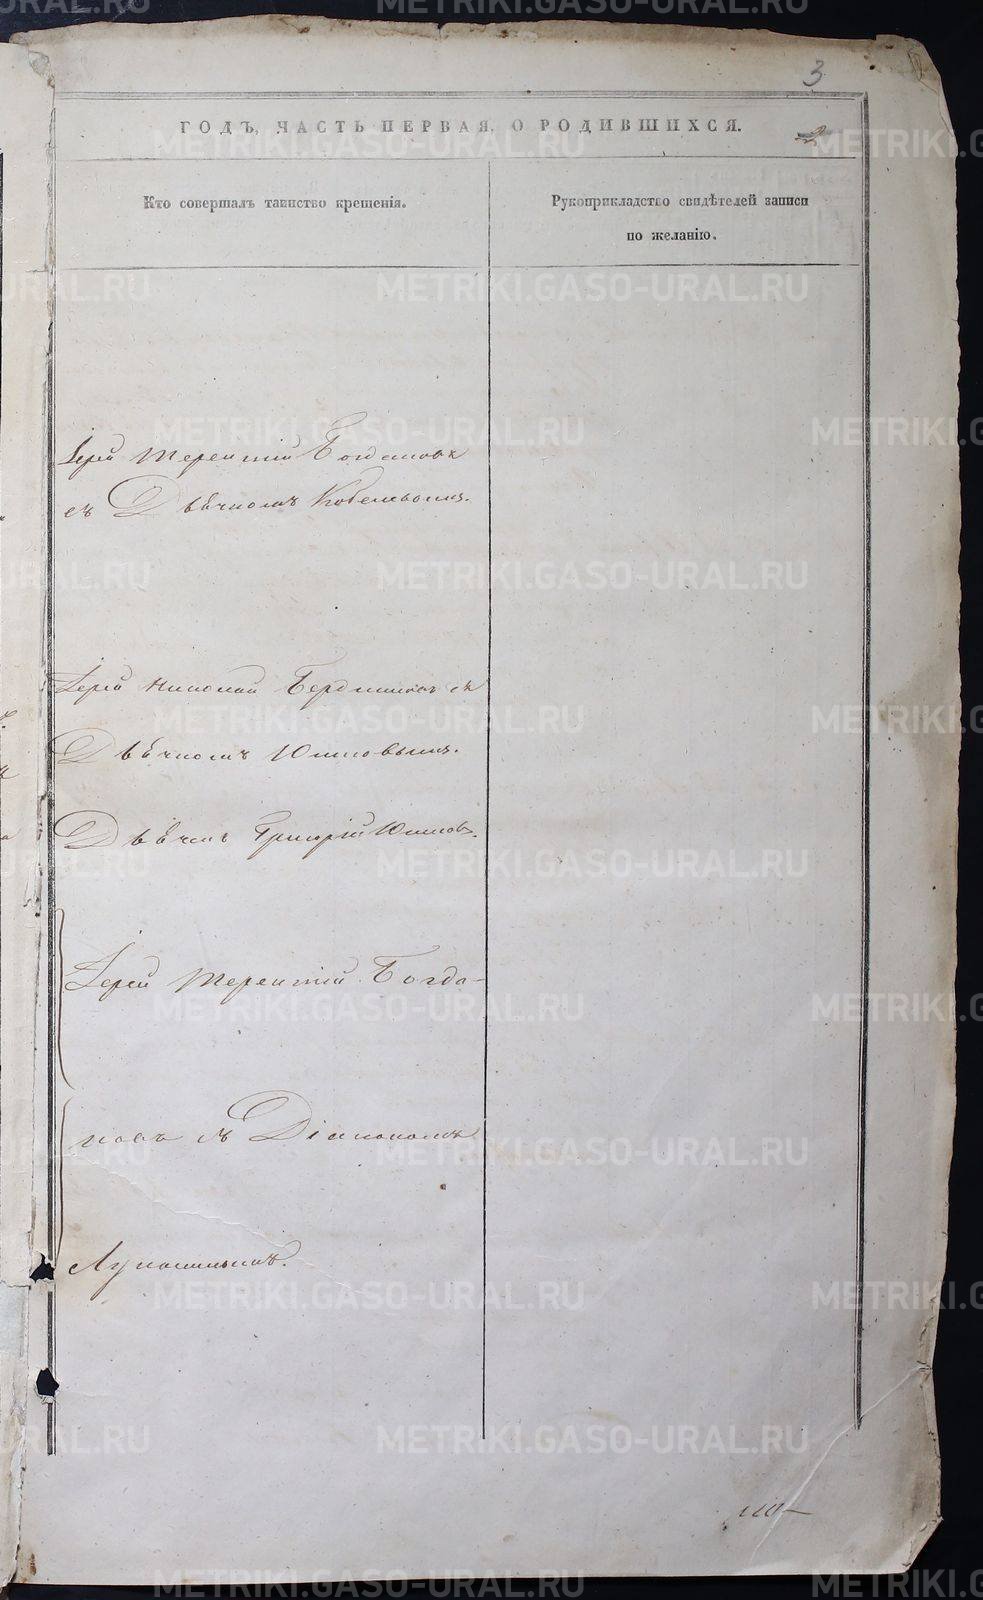 3
ГОДЪ, ЧАСТЬ ПЕРВАЯ, О РОДИВШИХСЯ.
2
Кто совершалъ таинство крещенія.
Рукоприкладство свидѣтелей записи
по желанію.
Іерей Терентій Богдановъ
съ Дьячкомъ
Іерей Николай Бердниковъ съ
Дьячкомъ Юшковымъ.
Дьячекъ Григорій Юшковъ.
Іерей Терентій Богда-
новъ съ Діакономъ
Лукошковъ.
METRIKI.GASO-URAL.RU